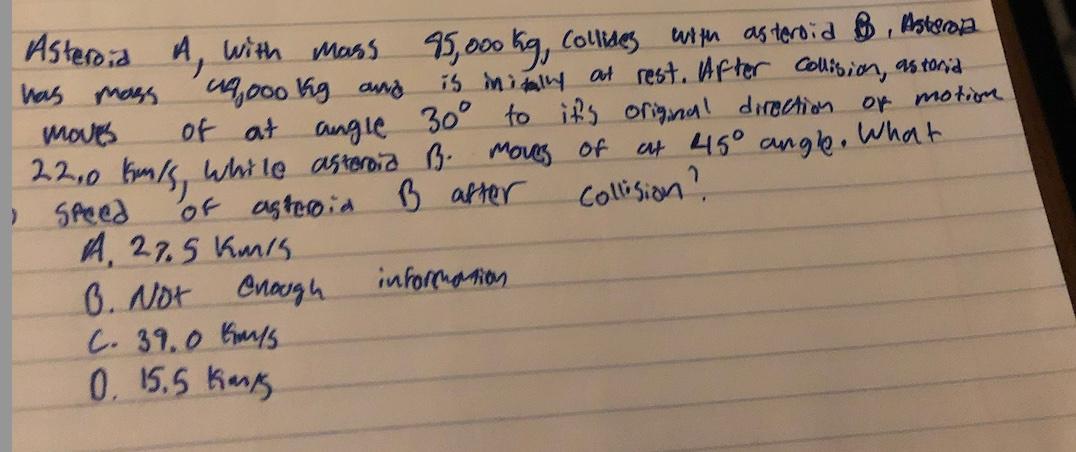 Asteroid A, with mass 95,000 kg, collides with asteroid B, Asteroid
has mass 49,000 kg and is initally at rest. After collision, astorid
moves of at angle 30° to it's original direction of motion
22.0 km/s, while asteroid B. moves of at 45° angle. What
speed of asteroid B after collision?
A. 27.5 km/s
B. Not enough information
C. 39.0 km/s
D. 15.5 km/s